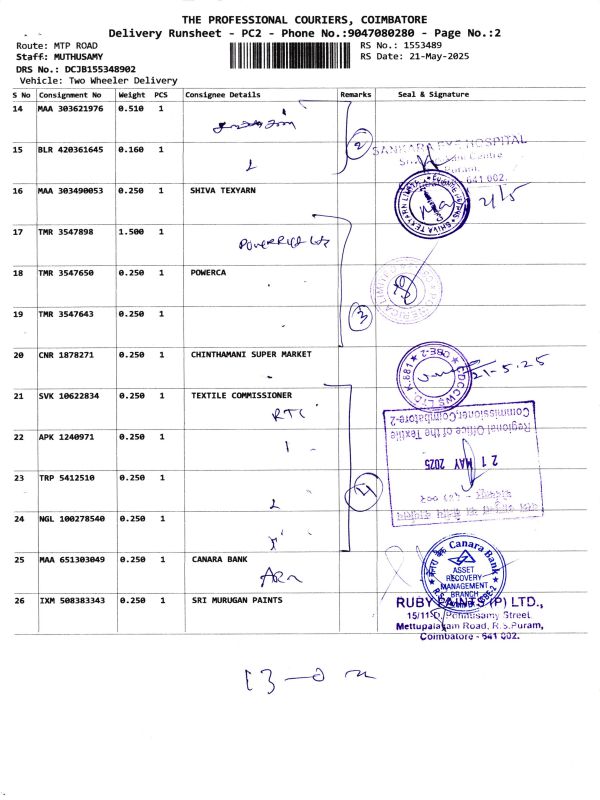 THE PROFESSIONAL COURIERS, COIMBATORE
Delivery Runsheet - PC2 - Phone No.:9047080280 - Page No.:2
Route: MTP ROAD
RS No.: 1553489
Staff: MUTHUSAMY
RS Date: 21-May-2025
DRS No.: DCJB155348902
Vehicle: Two Wheeler Delivery
S No Consignment No Weight PCS Consignee Details Remarks Seal & Signature
14 MAA 303621976 0.510 1
2
15 BLR 420361645 0.160 1
SANKARA EYE HOSPITAL
Puram,
641 002.
16 MAA 303490053 0.250 1 SHIVA TEXYARN
SHIVA TEXYARN LIMITED
21/5
17 TMR 3547898 1.500 1
18 TMR 3547650 0.250 1 POWERCA
19 TMR 3547643 0.250 1
3
20 CNR 1878271 0.250 1 CHINTHAMANI SUPER MARKET
CDCCWS LTD. K.881 CBE-2
21-5-25
21 SVK 10622834 0.250 1 TEXTILE COMMISSIONER
Regional Office of the Textile
Commissioner, Coimbatore-2
22 APK 1240971 0.250 1
21 MAY 2025
23 TRP 5412510 0.250 1
4
24 NGL 100278540 0.250 1
25 MAA 651303049 0.250 1 CANARA BANK
केनरा बैंक Canara Bank
ASSET
RECOVERY
MANAGEMENT
BRANCH
26 IXM 508383343 0.250 1 SRI MURUGAN PAINTS
RUBY PAINTS (P) LTD.,
15/11 D, Ponnusamy Street
Mettupalayam Road, R.S.Puram,
Coimbatore - 641 002.